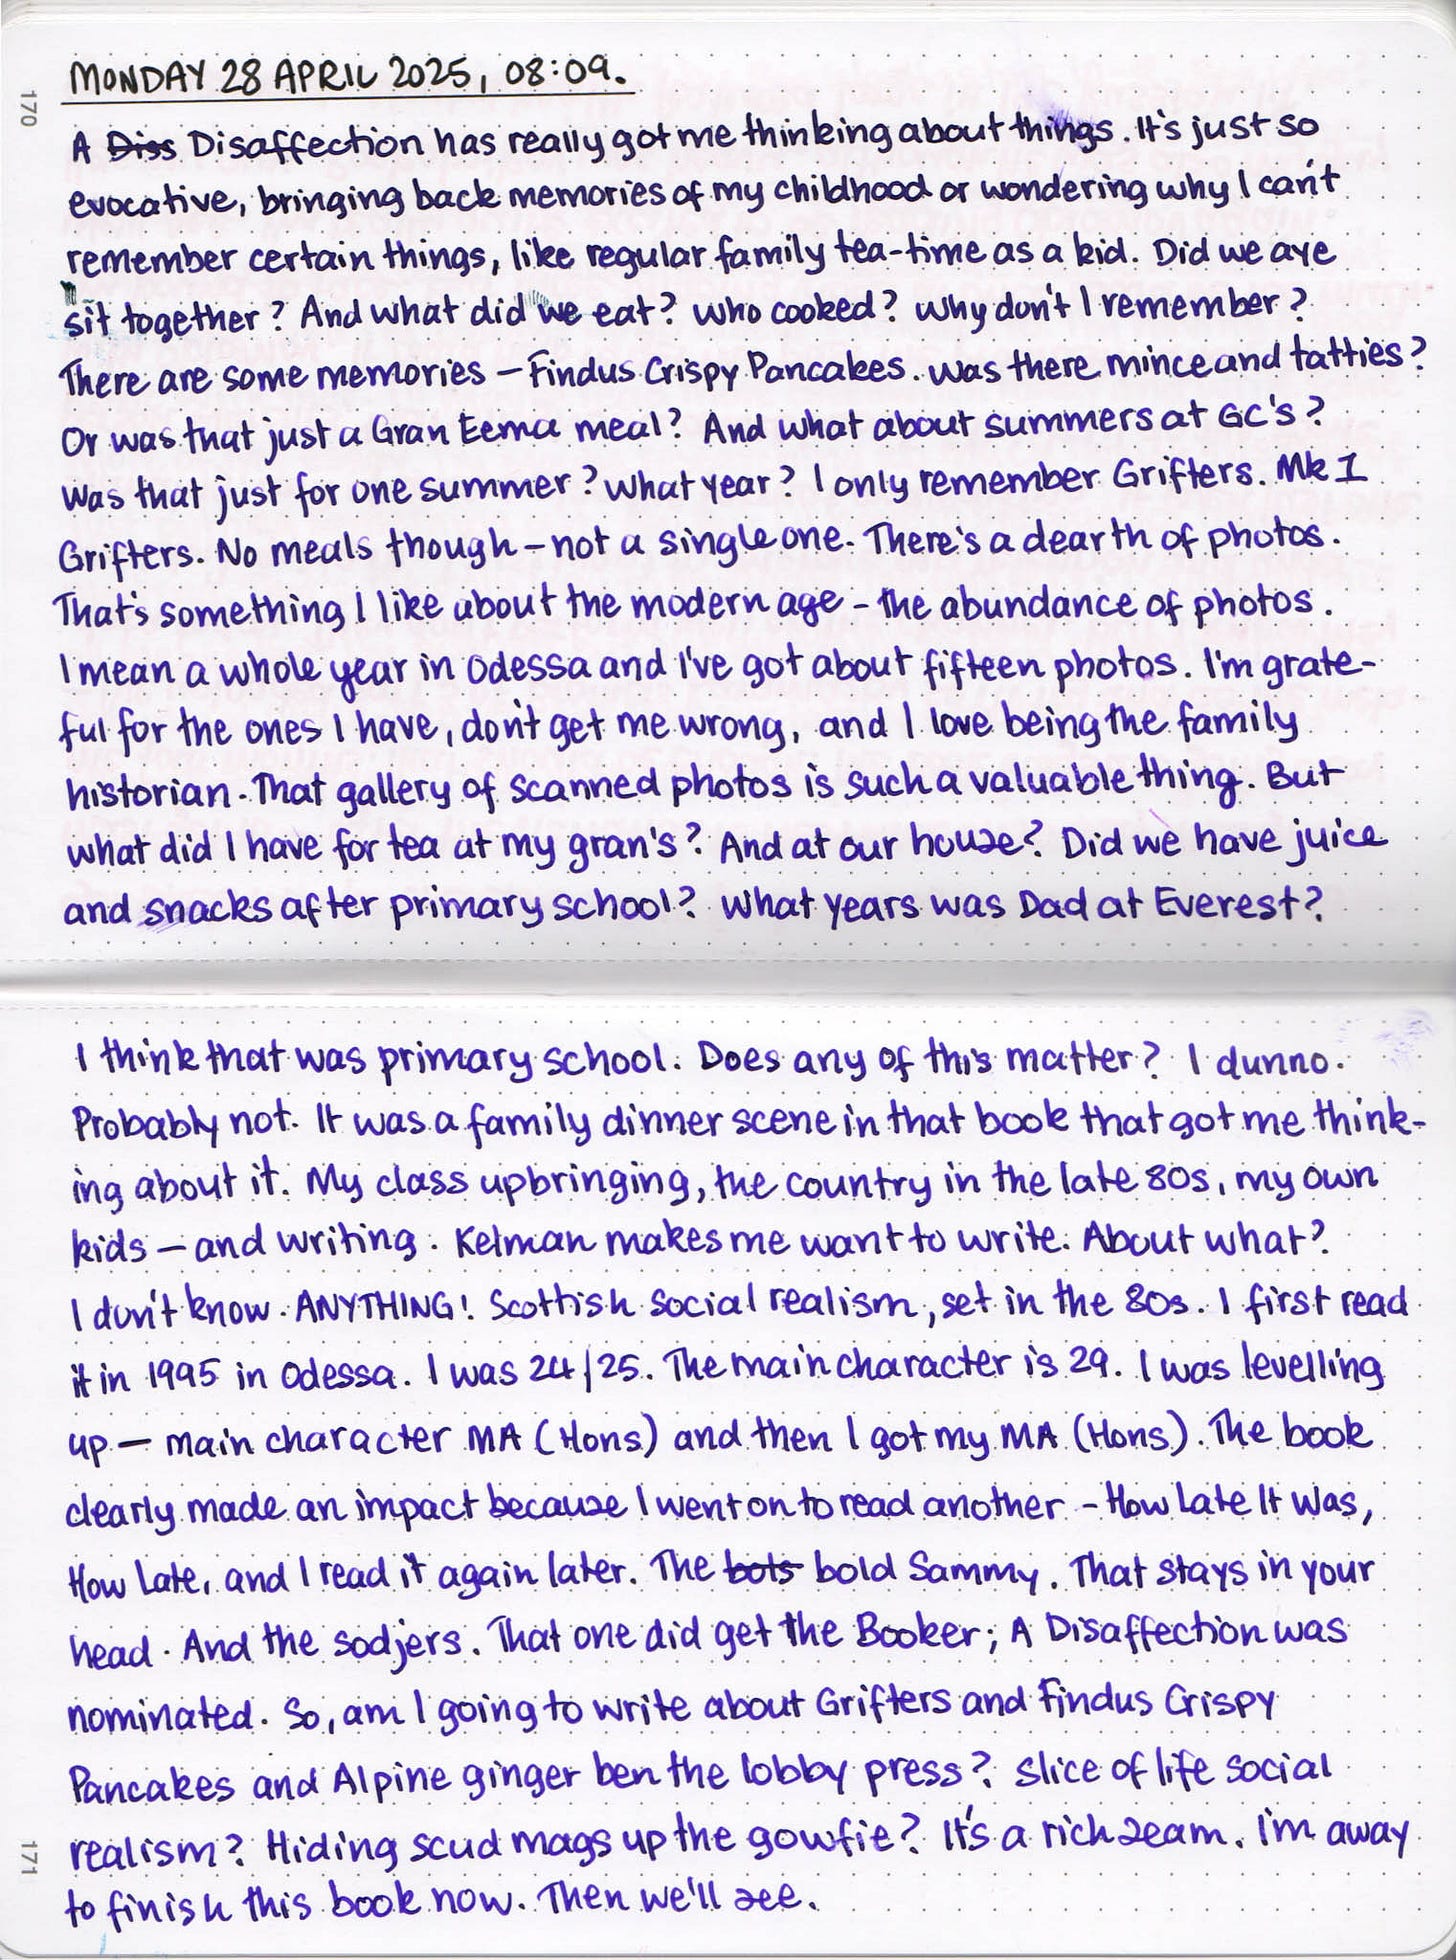 170
MONDAY 28 APRIL 2025, 08:09.
A Diss Disaffection has really got me thinking about things. It's just so
evocative, bringing back memories of my childhood or wondering why I can't
remember certain things, like regular family tea-time as a kid. Did we aye
sit together? And what did we eat? Who cooked? Why don't I remember?
There are some memories – Findus Crispy Pancakes. Was there mince and tatties?
Or was that just a Gran Eema meal? And what about summers at GC's?
Was that just for one summer? What year? I only remember Grifters. Mk 1
Grifters. No meals though – not a single one. There's a dearth of photos.
That's something I like about the modern age – the abundance of photos.
I mean a whole year in Odessa and I've got about fifteen photos. I'm grate-
ful for the ones I have, don't get me wrong, and I love being the family
historian. That gallery of scanned photos is such a valuable thing. But
what did I have for tea at my gran's? And at our house? Did we have juice
and snacks after primary school? What years was Dad at Everest?
I think that was primary school. Does any of this matter? I dunno.
Probably not. It was a family dinner scene in that book that got me think-
ing about it. My class upbringing, the country in the late 80s, my own
kids – and writing. Kelman makes me want to write. About what?
I don't know. ANYTHING! Scottish social realism, set in the 80s. I first read
it in 1995 in Odessa. I was 24/25. The main character is 29. I was levelling
up – main character MA (Hons) and then I got my MA (Hons). The book
clearly made an impact because I went on to read another – How Late It Was,
How Late, and I read it again later. The bots bold Sammy. That stays in your
head. And the sodjers. That one did get the Booker; A Disaffection was
nominated. So, am I going to write about Grifters and Findus Crispy
Pancakes and Alpine ginger ben the lobby press? Slice of life social
realism? Hiding scud mags up the gowfie? It's a rich seam. I'm away
to finish this book now. Then we'll see.
171